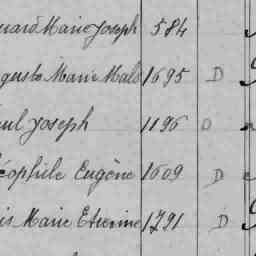 uard Marie Joseph 584
guste Marie Malo 1695 D
ul Joseph 1196 D
éophile Eugène 1609 D
is Marie Etienne 1791 D